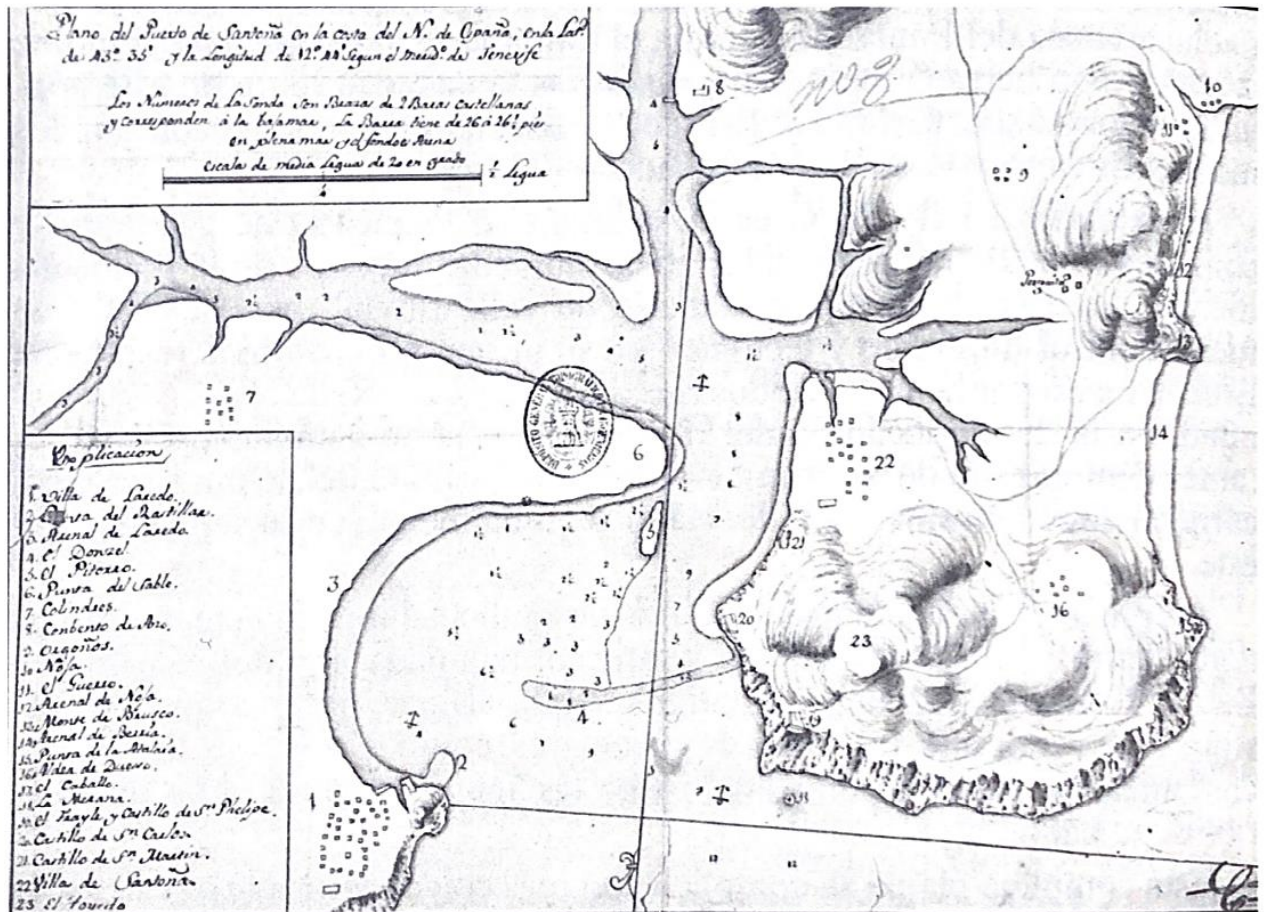 Plano del Puerto de Santoña en la costa del N. de España, en la Latd.
de 43° 35' y la Longitud de 12° 44' segun el merid.º de Tenerife
Los Numeros de La Sonda son Brazas de 2 Baras Castellanas
y corresponden à la bajamar, La Barra tiene de 26 à 26½ pies
en plenamar y el fondo es Arena
Escala de media Legua de 20 en grado
½ Legua
Explicacion
1. Villa de Laredo.
2. Punta del Rastillar.
3. Arenal de Laredo.
4. El Donzel.
5. El Pitorro.
6. Punta del Sable.
7. Colindres.
8. Conbento de Ano.
9. Argoños.
10. Noja.
11. El Gueso.
12. Arenal de Noja.
13. Monte de Brusco.
14. Arenal de Berria.
15. Punta de la Atalaia.
16. Aldea de Dueso.
17. El Caballo.
18. La Merana.
19. El Frayle, y Castillo de Sn. Phelipe.
20. Castillo de Sn. Carlos.
21. Castillo de Sn. Martin.
22. Villa de Santoña
23. El
8
9
10
11
12
13
14
7
6
22
5
21
3
16
20
23
15
19
4
2
1
18